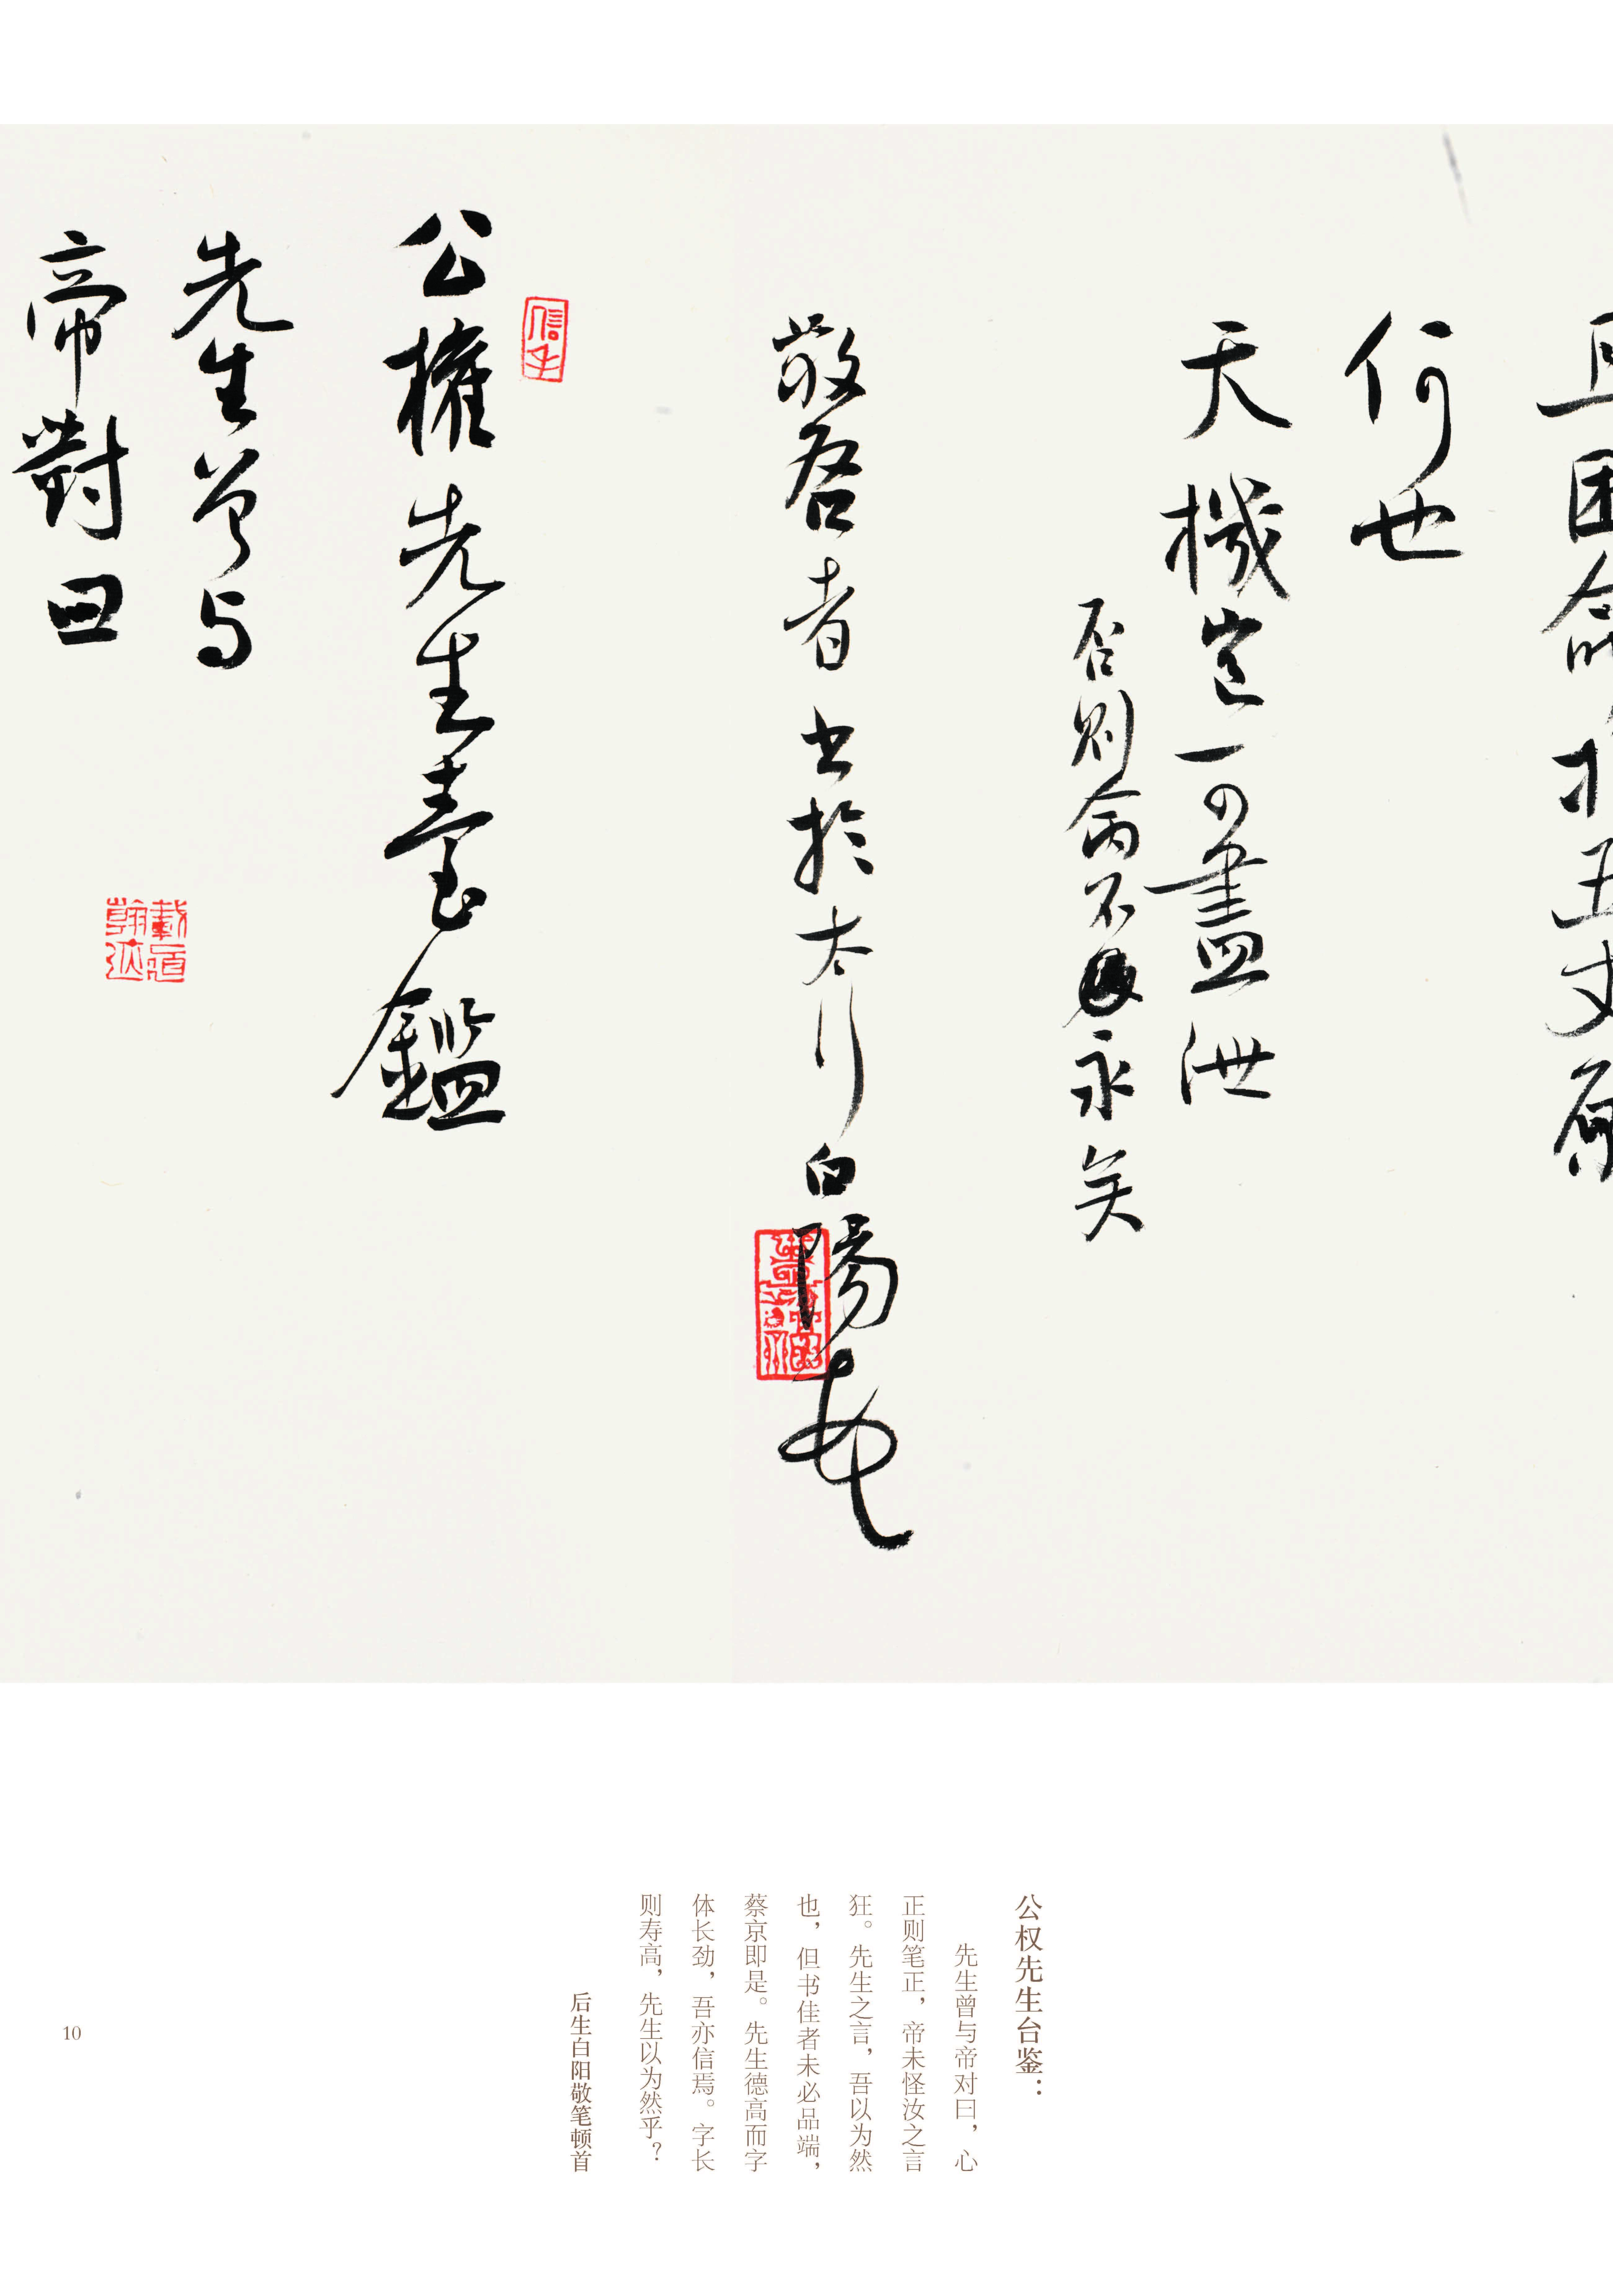 何也
天機豈可盡泄
否則禽不
永矣
敬啓者 书於太行白陽
公權先生臺鑑
先生曾与
帝對曰
公权先生台鉴：
先生曾与帝对曰，心
正则笔正，帝未怪汝之言
狂。先生之言，吾以为然
也，但书佳者未必品端，
蔡京即是。先生德高而字
体长劲，吾亦信焉。字长
则寿高，先生以为然乎？
后生白阳敬笔顿首
10